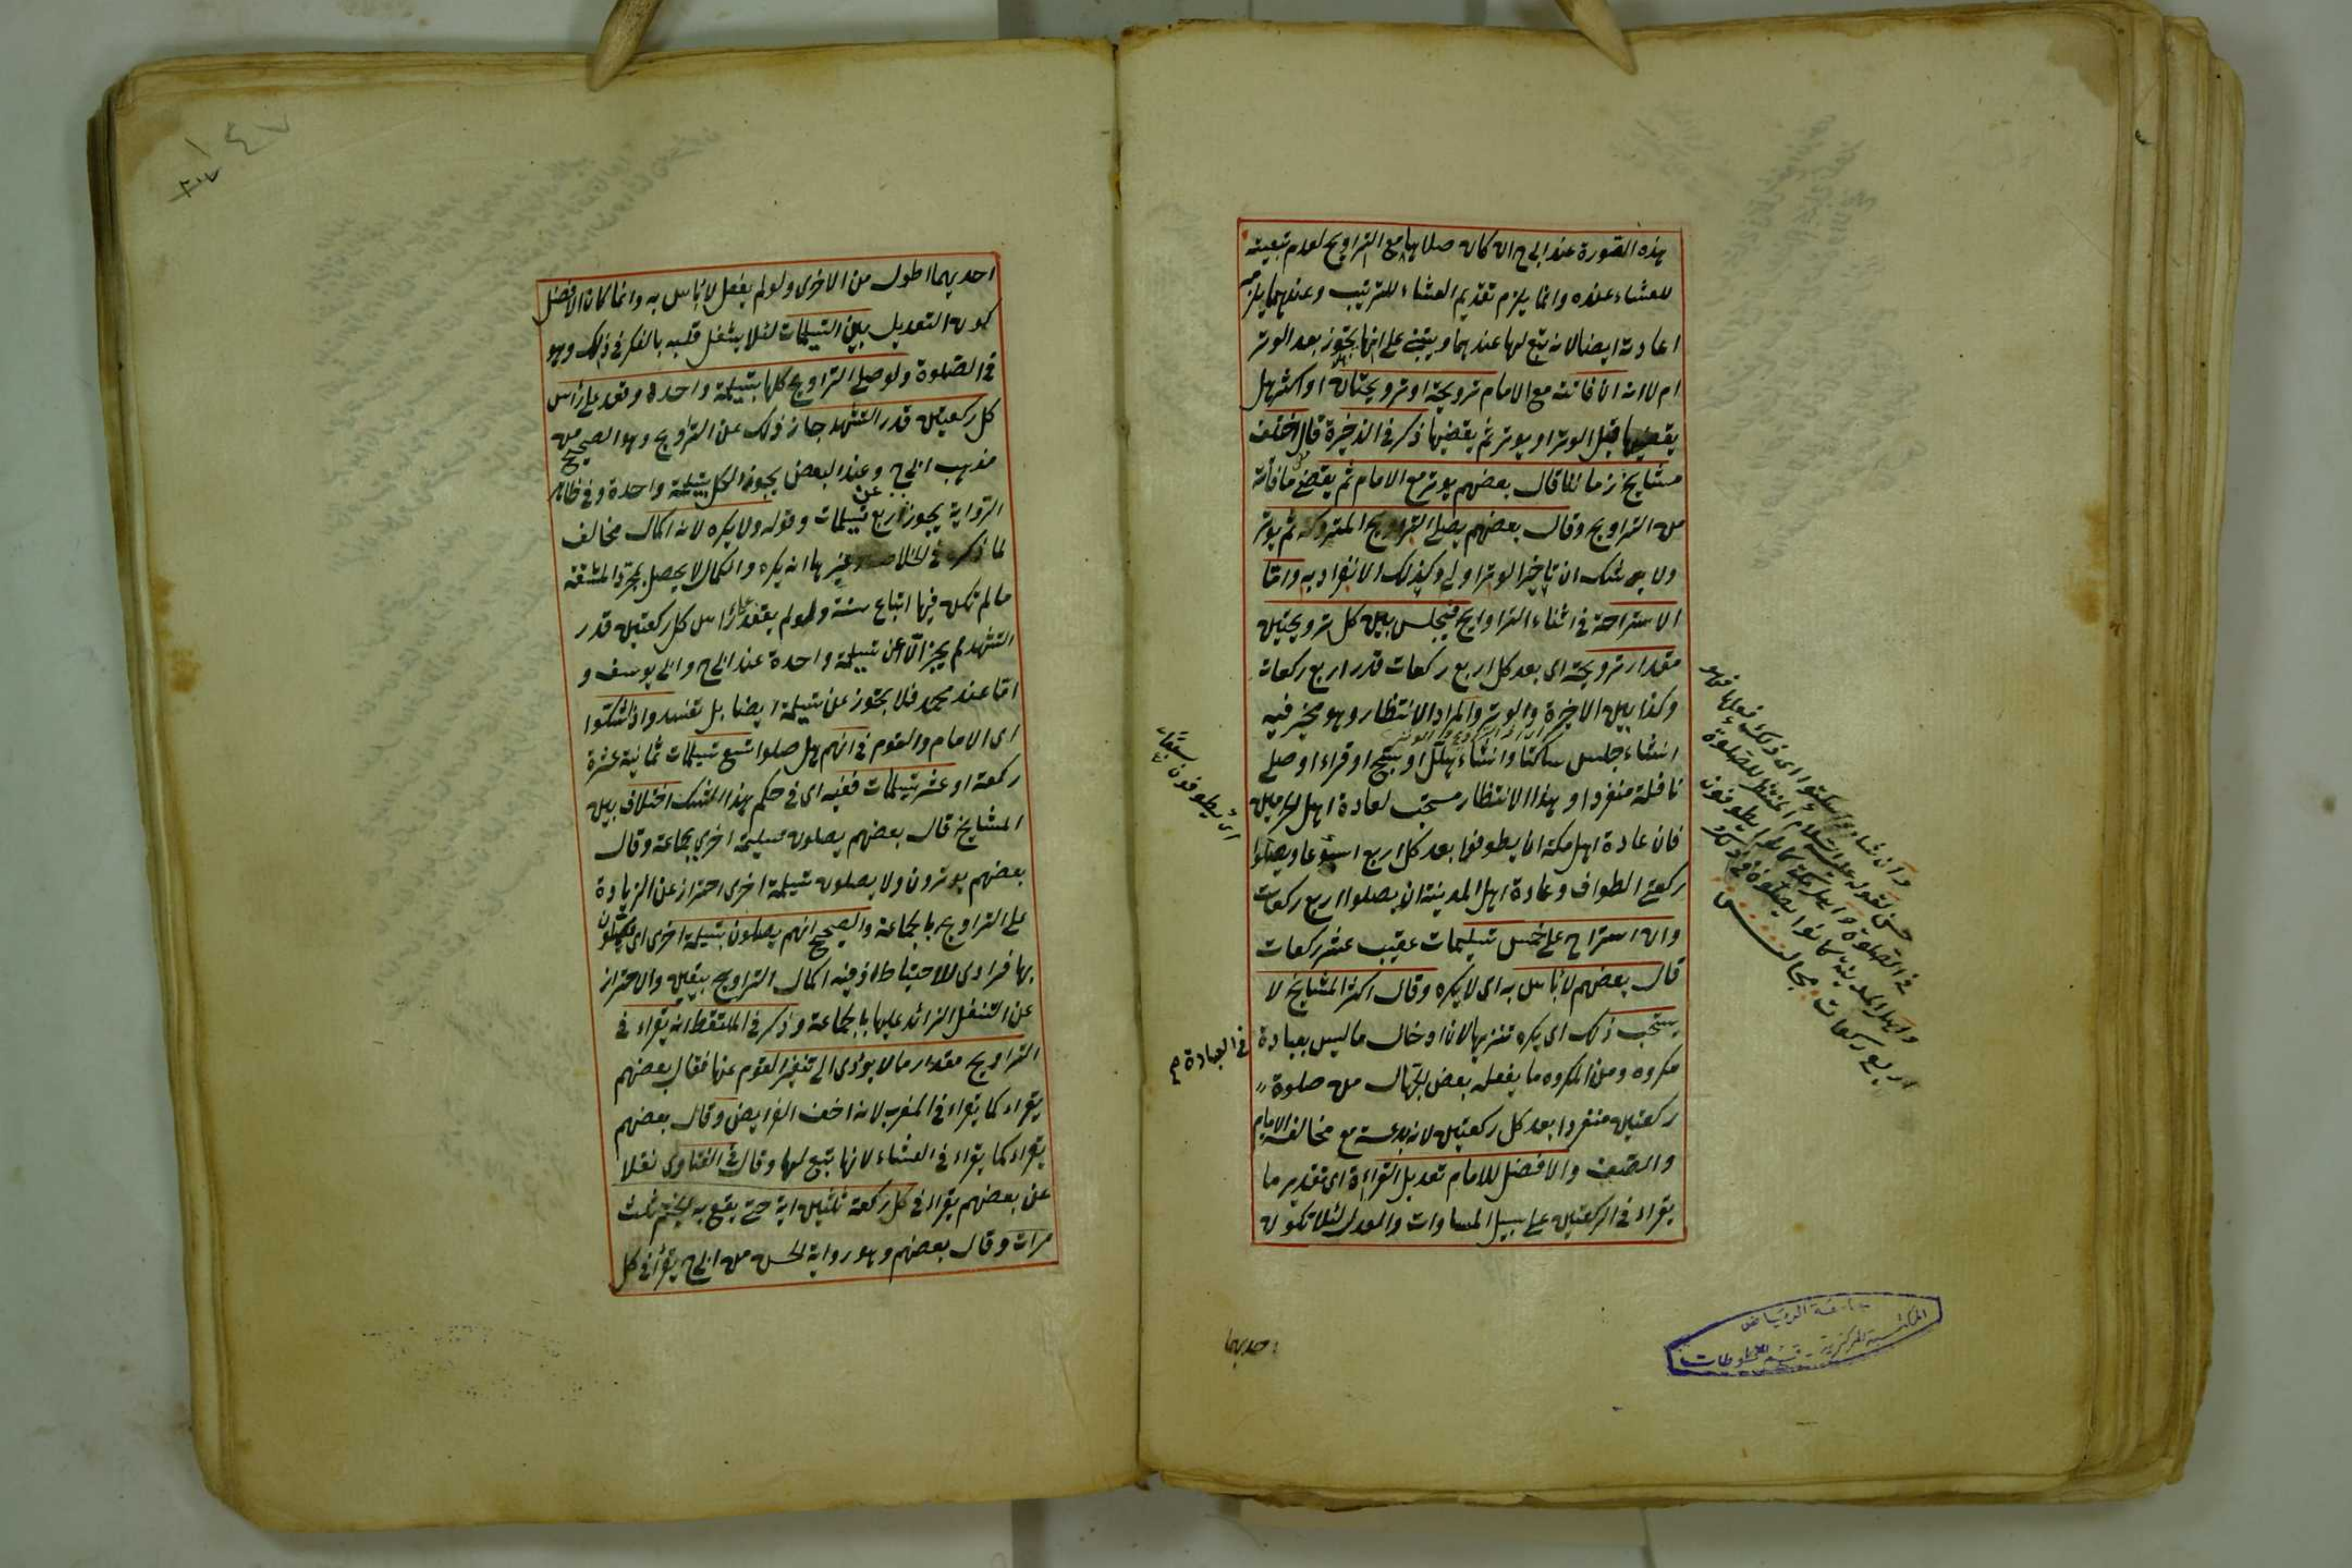 هذه الصورة عند ابى ح ان كان صلاها مع التراويح لعدم تبعيته
للعشاء عنده وانما يلزم تقديم العشاء للترتيب وعندهما يلزمه
اعادته ايضا لانه تبع لها عندهما ويبتنى على انها يجوز بعد الوتر
ام لا انه ان فاتته مع الامام ترويحة او ترويحتان او اكثر هل
يقضيها قبل الوتر او يوتر ثم يقضيها ذكر فى الذخيرة قال اختلف
مشايخ زماننا قال بعضهم يوتر مع الامام ثم يقضى ما فاته
من التراويح وقال بعضهم يصلى التراويح المتروكة ثم يوتر
ولا شك ان تاخير الوتر اولى وكذلك الانفراد به واما
الاستراحة فى اثناء التراويح فيجلس بين كل ترويحتين
مقدار ترويحة اى بعد كل اربع ركعات قدر اربع ركعات
وكذا بين الاخيرة والوتر والمراد الانتظار وهو مخير فيه
انشاء جلس ساكتا وانشاء هلل او سبح او قراء او صلى
نافلة منفردا وهذا الانتظار مستحب لعادة اهل الحرمين
فان عادة اهل مكة ان يطوفوا بعد كل اربع اسبوعا ويصلوا
ركعتى الطواف وعادة اهل المدينة ان يصلوا اربع ركعات
وان استراح على خمس تسليمات عقيب عشر ركعات
قال بعضهم لا بأس به اى لا يكره وقال اكثر المشايخ لا
يستحب ذلك اى يكره تنزيها لان ادخال ما ليس بعبادة
فى العبادة ص
مكروه ومن المكروه ما يفعله بعض الجهال من صلوة
ركعتين منفردا بعد كل ركعتين لانه بدعة مع مخالفة الامام
والصف والافضل للامام تعديل القراءة اى تقدير ما
يقراء فى الركعتين على سبيل المساوات والعدل لئلا تكون
احديهما
اى يطوفون سبعا
فى الصلوة واهل مكة كانوا يطوفون
واهل المدينة كانوا يصلون
اربع ركعات
جامعة الرياض
المكتبة المركزية - قسم المخطوطات
١٤٧
احديهما اطول من الاخرى ولو لم يفعل لا بأس به وانما كان الافضل
كون التعديل بين التسليمات لئلا يشغل قلبه بالفكر فى ذلك وهو
فى الصلوة ولو صلى التراويح كلها بتسليمة واحدة وقعد على رأس
كل ركعتين قدر التشهد جاز ذلك عن التراويح وهو الصحيح من
مذهب ابى ح وعند البعض يجوز الكل بتسليمة واحدة وفى ظاهر
الرواية يجوز عن اربع تسليمات وقوله ولا يكره لانه اكمال مخالف
لما ذكره فى الخلاصة وغيرها انه يكره والكمال لا يحصل بمجرد المشقة
ما لم تكن فيها اتباع سنة ولو لم يقعد على رأس كل ركعتين قدر
التشهد لم يجز الا عن تسليمة واحدة عند ابى ح وابى يوسف و
اما عند محمد فلا يجوز عن تسليمة ايضا بل تفسد واذا شكوا
اى الامام والقوم فى انهم هل صلوا تسع تسليمات ثمانية عشرة
ركعة او عشر تسليمات ففيه اى فى حكم هذا الشك اختلاف بين
المشايخ قال بعضهم يصلون تسليمة اخرى بجماعة وقال
بعضهم يوترون ولا يصلون تسليمة اخرى احترازا عن الزيادة
على التراويح بالجماعة والصحيح انهم يصلون بتسليمة اخرى اى يصلون
بها فرادى للاحتياط اذ فيه اكمال التراويح بيقين والاحتراز
عن التنفل الزائد عليها بالجماعة وذكر فى الملتقط انه يقراء فى
التراويح مقدار ما لا يؤدى الى تنفير القوم عنها فقال بعضهم
يقراء كما يقراء فى المغرب لانه اخف الفرايض وقال بعضهم
يقراء كما يقراء فى العشاء لانها تبع لها وقال فى الفتاوى نقلا
عن بعضهم يقراء فى كل ركعة ثلثين اية حتى يقع به الختم ثلث
مرات وقال بعضهم وهو رواية الحسن عن ابى ح يقرأ فى كل